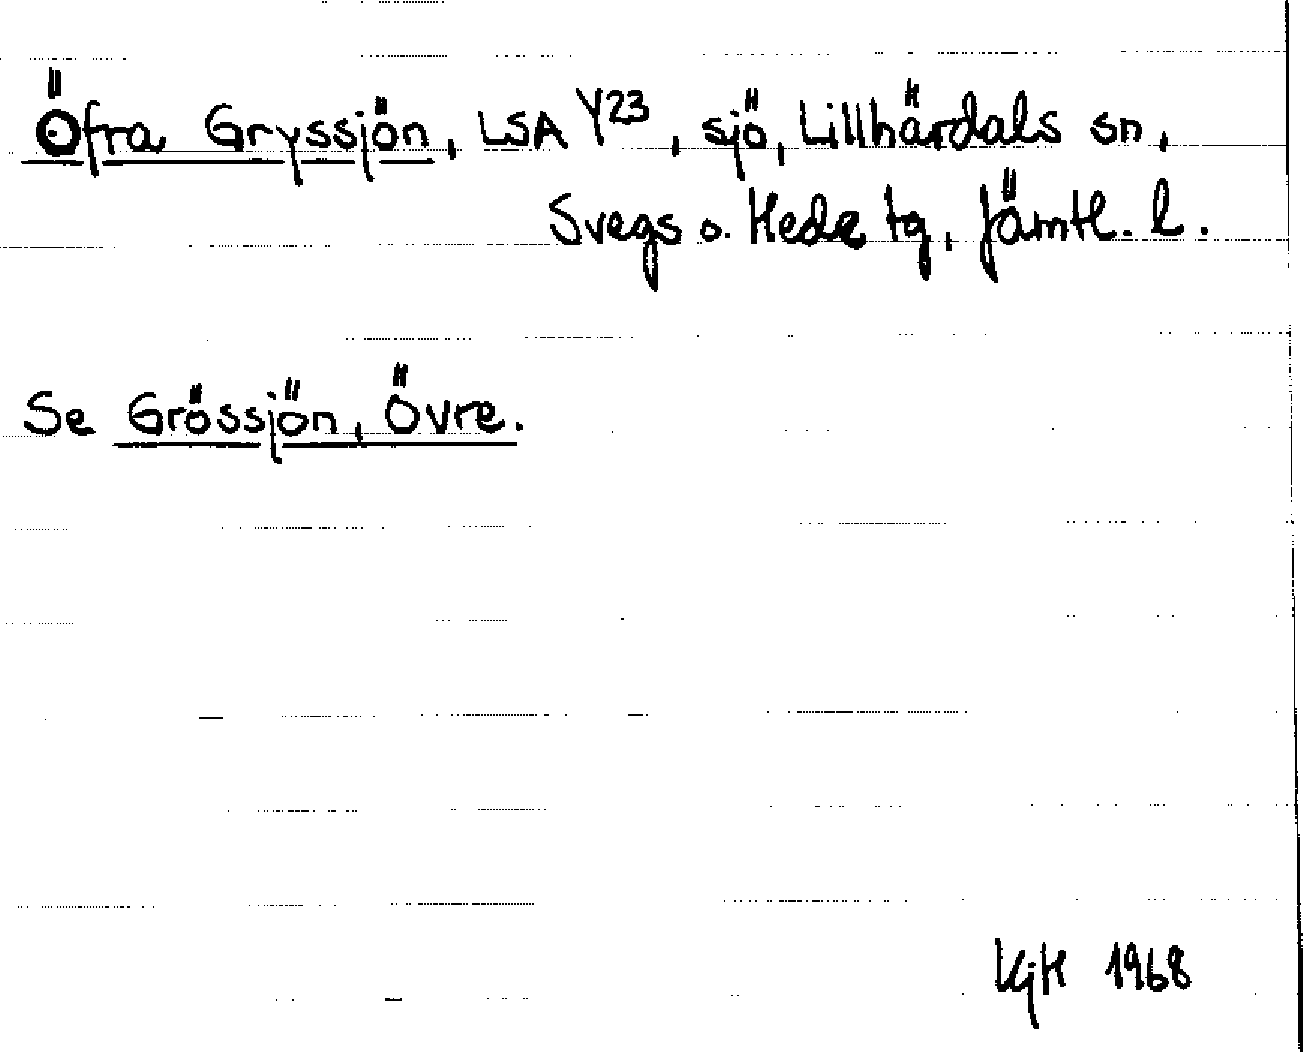 Öfra Gryssjön, LSA Y23, sjö, Lillhärdals sn,
Svegs o. Hede tg, Jämtl. l.
Se Grössjön, Övre.
KjH 1968